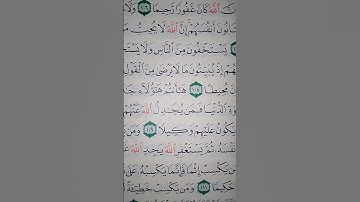 ٱللَّهَ كَانَ غَفُورًا رَّحِيمًا ١٠٦ وَلَا
تَانُونَ أَنفُسَهُمْ إِنَّ ٱللَّهَ لَا يُحِبُّ مَ
يَسْتَخْفُونَ مِنَ ٱلنَّاسِ وَلَا يَسْتَخْ
هُمْ إِذْ يُبَيِّتُونَ مَا لَا يَرْضَىٰ مِنَ ٱلْقَوْلِ
مُحِيطًا ١٠٨ هَٰٓأَنتُمْ هَٰٓؤُلَآءِ جَا
وةِ ٱلدُّنْيَا فَمَن يُجَٰدِلُ ٱللَّهَ عَنْهُمْ
يَكُونُ عَلَيْهِمْ وَكِيلًا ١٠٩ وَمَن يَ
نَفْسَهُۥ ثُمَّ يَسْتَغْفِرِ ٱللَّهَ يَجِدِ ٱللَّهَ غَ
مَن يَكْسِبْ إِثْمًا فَإِنَّمَا يَكْسِبُهُۥ عَلَىٰ
حَكِيمًا ١١١ وَمَن يَكْسِبْ خَطِيٓـَٔةً